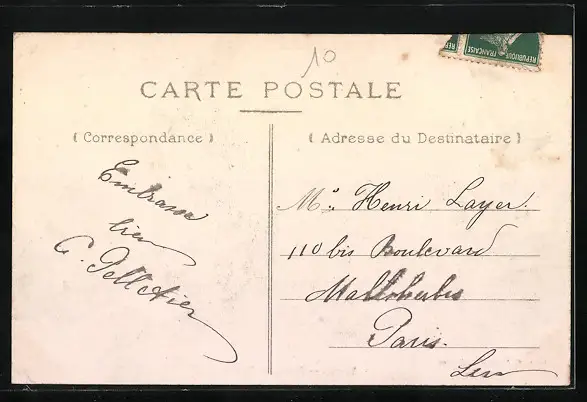 10
CARTE POSTALE
( Correspondance )
( Adresse du Destinataire )
REPUBLIQUE FRANÇAISE
Embrasse
bien
C. Pelletier
Mr Henri Layer.
110 bis Boulevard
Malesherbes
Paris.